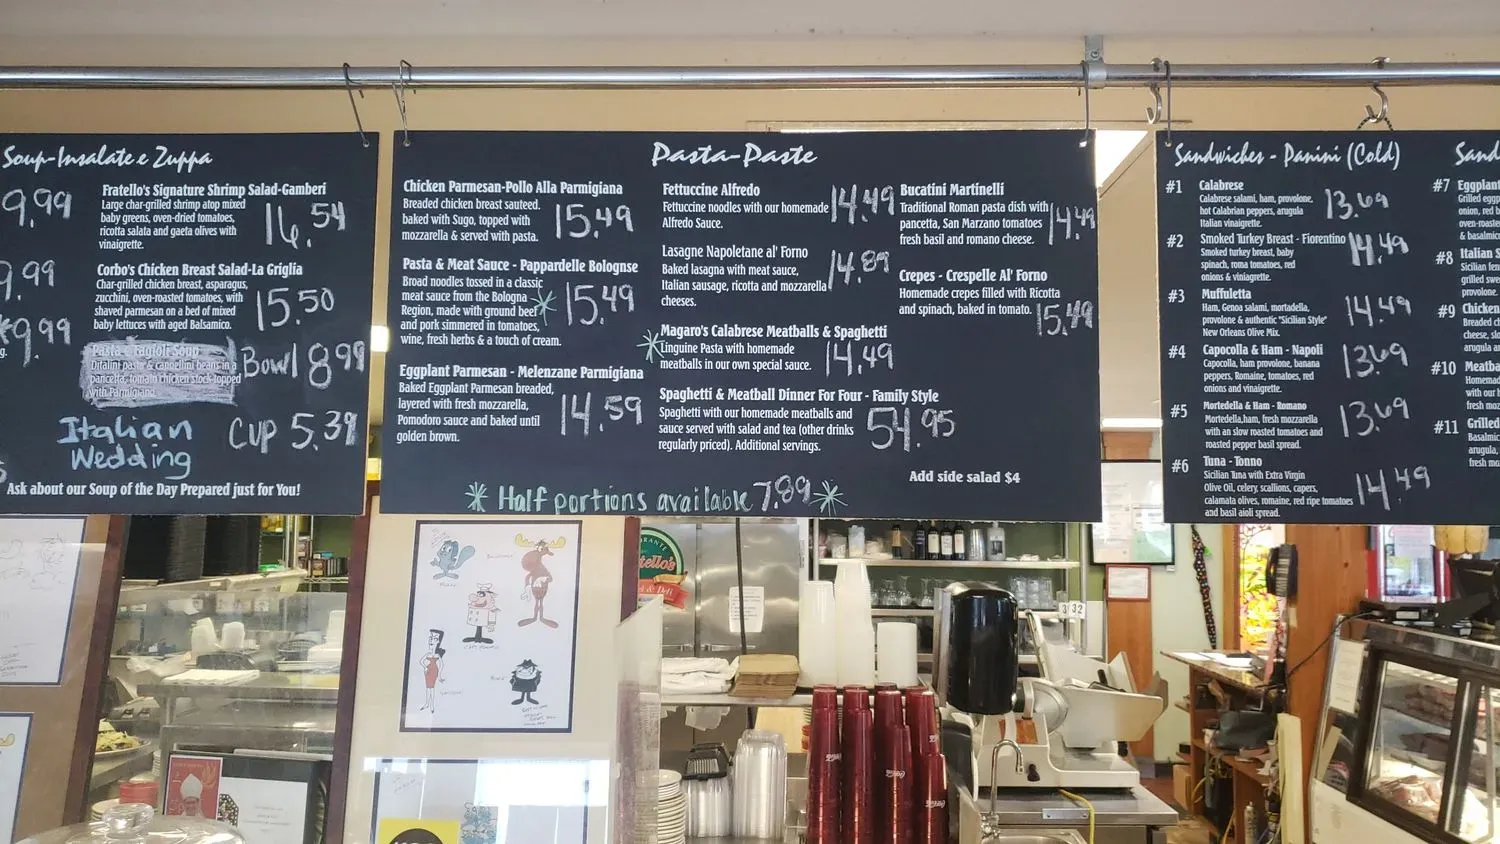 Soup-Insalate e Zuppa
9.99
Fratello's Signature Shrimp Salad-Gamberi
Large char-grilled shrimp atop mixed
baby greens, oven-dried tomatoes,
ricotta salata and gaeta olives with
vinaigrette.
16.54
9.99
Corbo's Chicken Breast Salad-La Griglia
Char-grilled chicken breast, asparagus,
zucchini, oven-roasted tomatoes, with
shaved parmesan on a bed of mixed
baby lettuces with aged Balsamico.
15.50
*9.99
Pasta e Fagioli Soup
Ditalini pasta & cannellini beans in a
pancetta, tomato chicken stock topped
with Parmigiano.
Bowl 8.99
Italian
Wedding
Cup 5.39
Ask about our Soup of the Day Prepared just for You!
Pasta-Paste
Chicken Parmesan-Pollo Alla Parmigiana
Breaded chicken breast sauteed.
baked with Sugo, topped with
mozzarella & served with pasta.
15.49
Pasta & Meat Sauce - Pappardelle Bolognse
Broad noodles tossed in a classic
meat sauce from the Bologna
Region, made with ground beef
and pork simmered in tomatoes,
wine, fresh herbs & a touch of cream.
15.49
Eggplant Parmesan - Melenzane Parmigiana
Baked Eggplant Parmesan breaded,
layered with fresh mozzarella,
Pomodoro sauce and baked until
golden brown.
14.59
Fettuccine Alfredo
Fettuccine noodles with our homemade
Alfredo Sauce.
14.49
Lasagne Napoletane al' Forno
Baked lasagna with meat sauce,
Italian sausage, ricotta and mozzarella
cheeses.
14.89
Magaro's Calabrese Meatballs & Spaghetti
Linguine Pasta with homemade
meatballs in our own special sauce.
14.49
Spaghetti & Meatball Dinner For Four - Family Style
Spaghetti with our homemade meatballs and
sauce served with salad and tea (other drinks
regularly priced). Additional servings.
54.95
Bucatini Martinelli
Traditional Roman pasta dish with
pancetta, San Marzano tomatoes
fresh basil and romano cheese.
14.49
Crepes - Crespelle Al' Forno
Homemade crepes filled with Ricotta
and spinach, baked in tomato.
15.49
Add side salad $4
* Half portions available 7.89 *
Sandwiches - Panini (Cold)
#1 Calabrese
Calabrese salami, ham, provolone,
hot Calabrian peppers, arugula
Italian vinaigrette.
13.69
#2 Smoked Turkey Breast - Fiorentino
Smoked turkey breast, baby
spinach, roma tomatoes, red
onions & viniagrette.
14.49
#3 Muffuletta
Ham, Genoa salami, mortadella,
provolone & authentic "Sicilian Style"
New Orleans Olive Mix.
14.49
#4 Capocolla & Ham - Napoli
Capocolla, ham provolone, banana
peppers, Romaine, tomatoes, red
onions and vinaigrette.
13.69
#5 Mortedella & Ham - Romano
Mortedella,ham, fresh mozzarella
with an slow roasted tomatoes and
roasted pepper basil spread.
13.69
#6 Tuna - Tonno
Sicilian Tuna with Extra Virgin
Olive Oil, celery, scallions, capers,
calamata olives, romaine, red ripe tomatoes
and basil aioli spread.
14.49
Sand
#7 Eggplant
Grilled eggp
onion, red b
oven-roaste
& basalmic
#8 Italian S
Sicilian fen
grilled swe
provolone.
#9 Chicken
Breaded c
cheese, slo
arugula ar
#10 Meatba
Homemad
with our h
fresh moz
#11 Grilled
Basalmic
arugula,
fresh mo